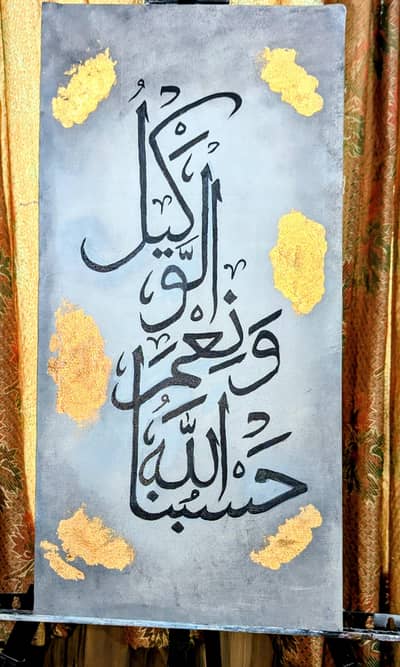 حَسْبُنَا اللّٰه
وَنِعْمَ
الْوَكِيلُ